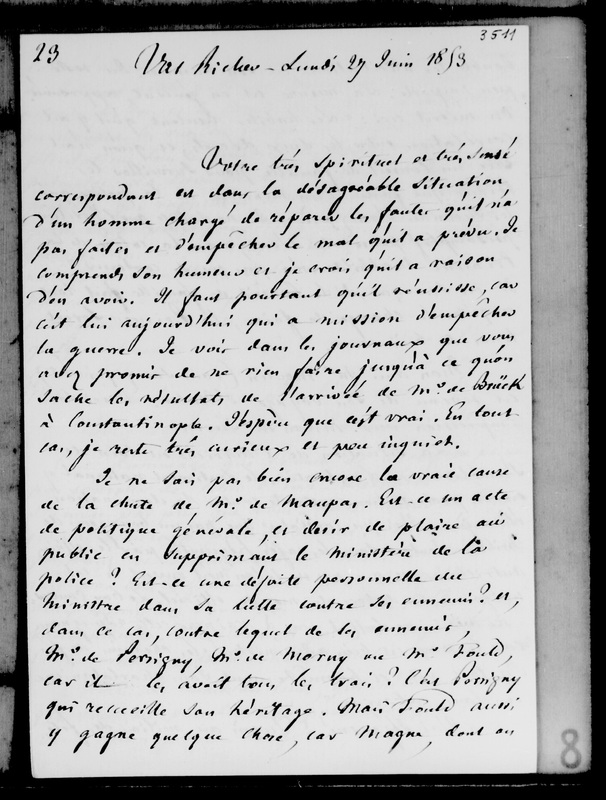 3511
23
Val Richer - Lundi 27 Juin 1853
Votre très spirituel et très sensé
correspondant est dans la désagréable situation
d'un homme chargé de réparer les fautes qu'il n'a
pas faites et d'empêcher le mal qu'il a prévu. Je
comprends son humeur et je crois qu'il a raison
d'en avoir. Il faut pourtant qu'il réussisse, car
c'est lui aujourd'hui qui a mission d'empêcher
la guerre. Je vois dans les journaux que vous
avez promis de ne rien faire jusqu'à ce qu'on
sache les résultats de l'arrivée de Mr. de Brück
à Constantinople. J'espère que c'est vrai. En tout
cas, je reste très curieux et peu inquiet.
Je ne sais pas bien encore la vraie cause
de la chute de Mr. de Maupas. Est-ce un acte
de politique générale, et desir de plaire au
public en supprimant le ministère de la
police ? Est-ce une défaite personnelle du
Ministre dans sa lutte contre ses ennemis ? et,
dans ce cas, contre lequel de ses ennemis,
Mr. de Persigny, Mr. de Morny ou Mr. Fould,
car il les avait tous les trois ? C'est Persigny
qui recueille son héritage. Mais Fould aussi
y gagne quelque chose, car Magne, dont on
8